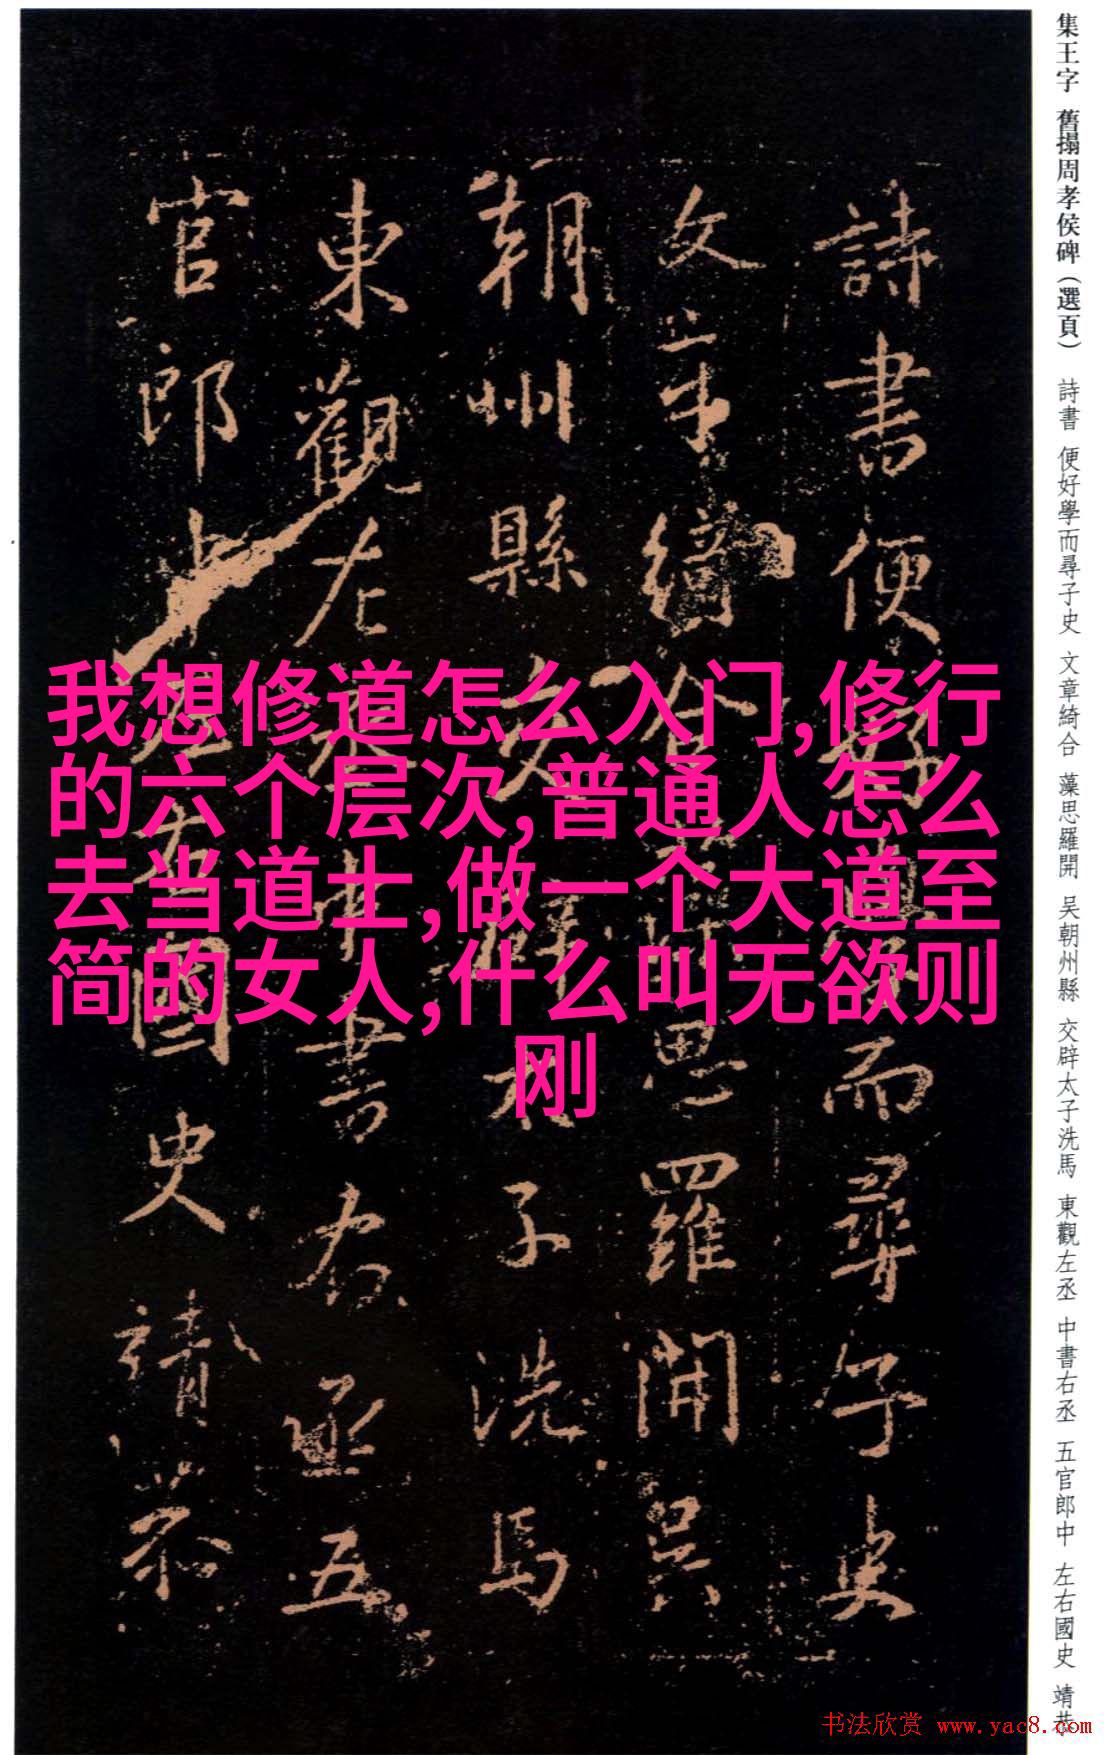 集王字 舊搨周孝侯碑（選頁） 詩書 便好學而尋子史 文章綺合 藻思羅開 吴朝州縣 交辟太子洗馬 東觀左丞 中書右丞 五官郎中 左右國史 靖恭
詩書便好學而尋子史
文章綺合藻思羅開吴
朝州縣交辟太子洗馬
東觀左丞中書右丞五
官郎中左右國史靖恭
我想修道怎么入门,修行
的六个层次,普通人怎么
去当道士,做一个大道至
简的女人,什么叫无欲则
刚
书法欣赏 www.yac8.com